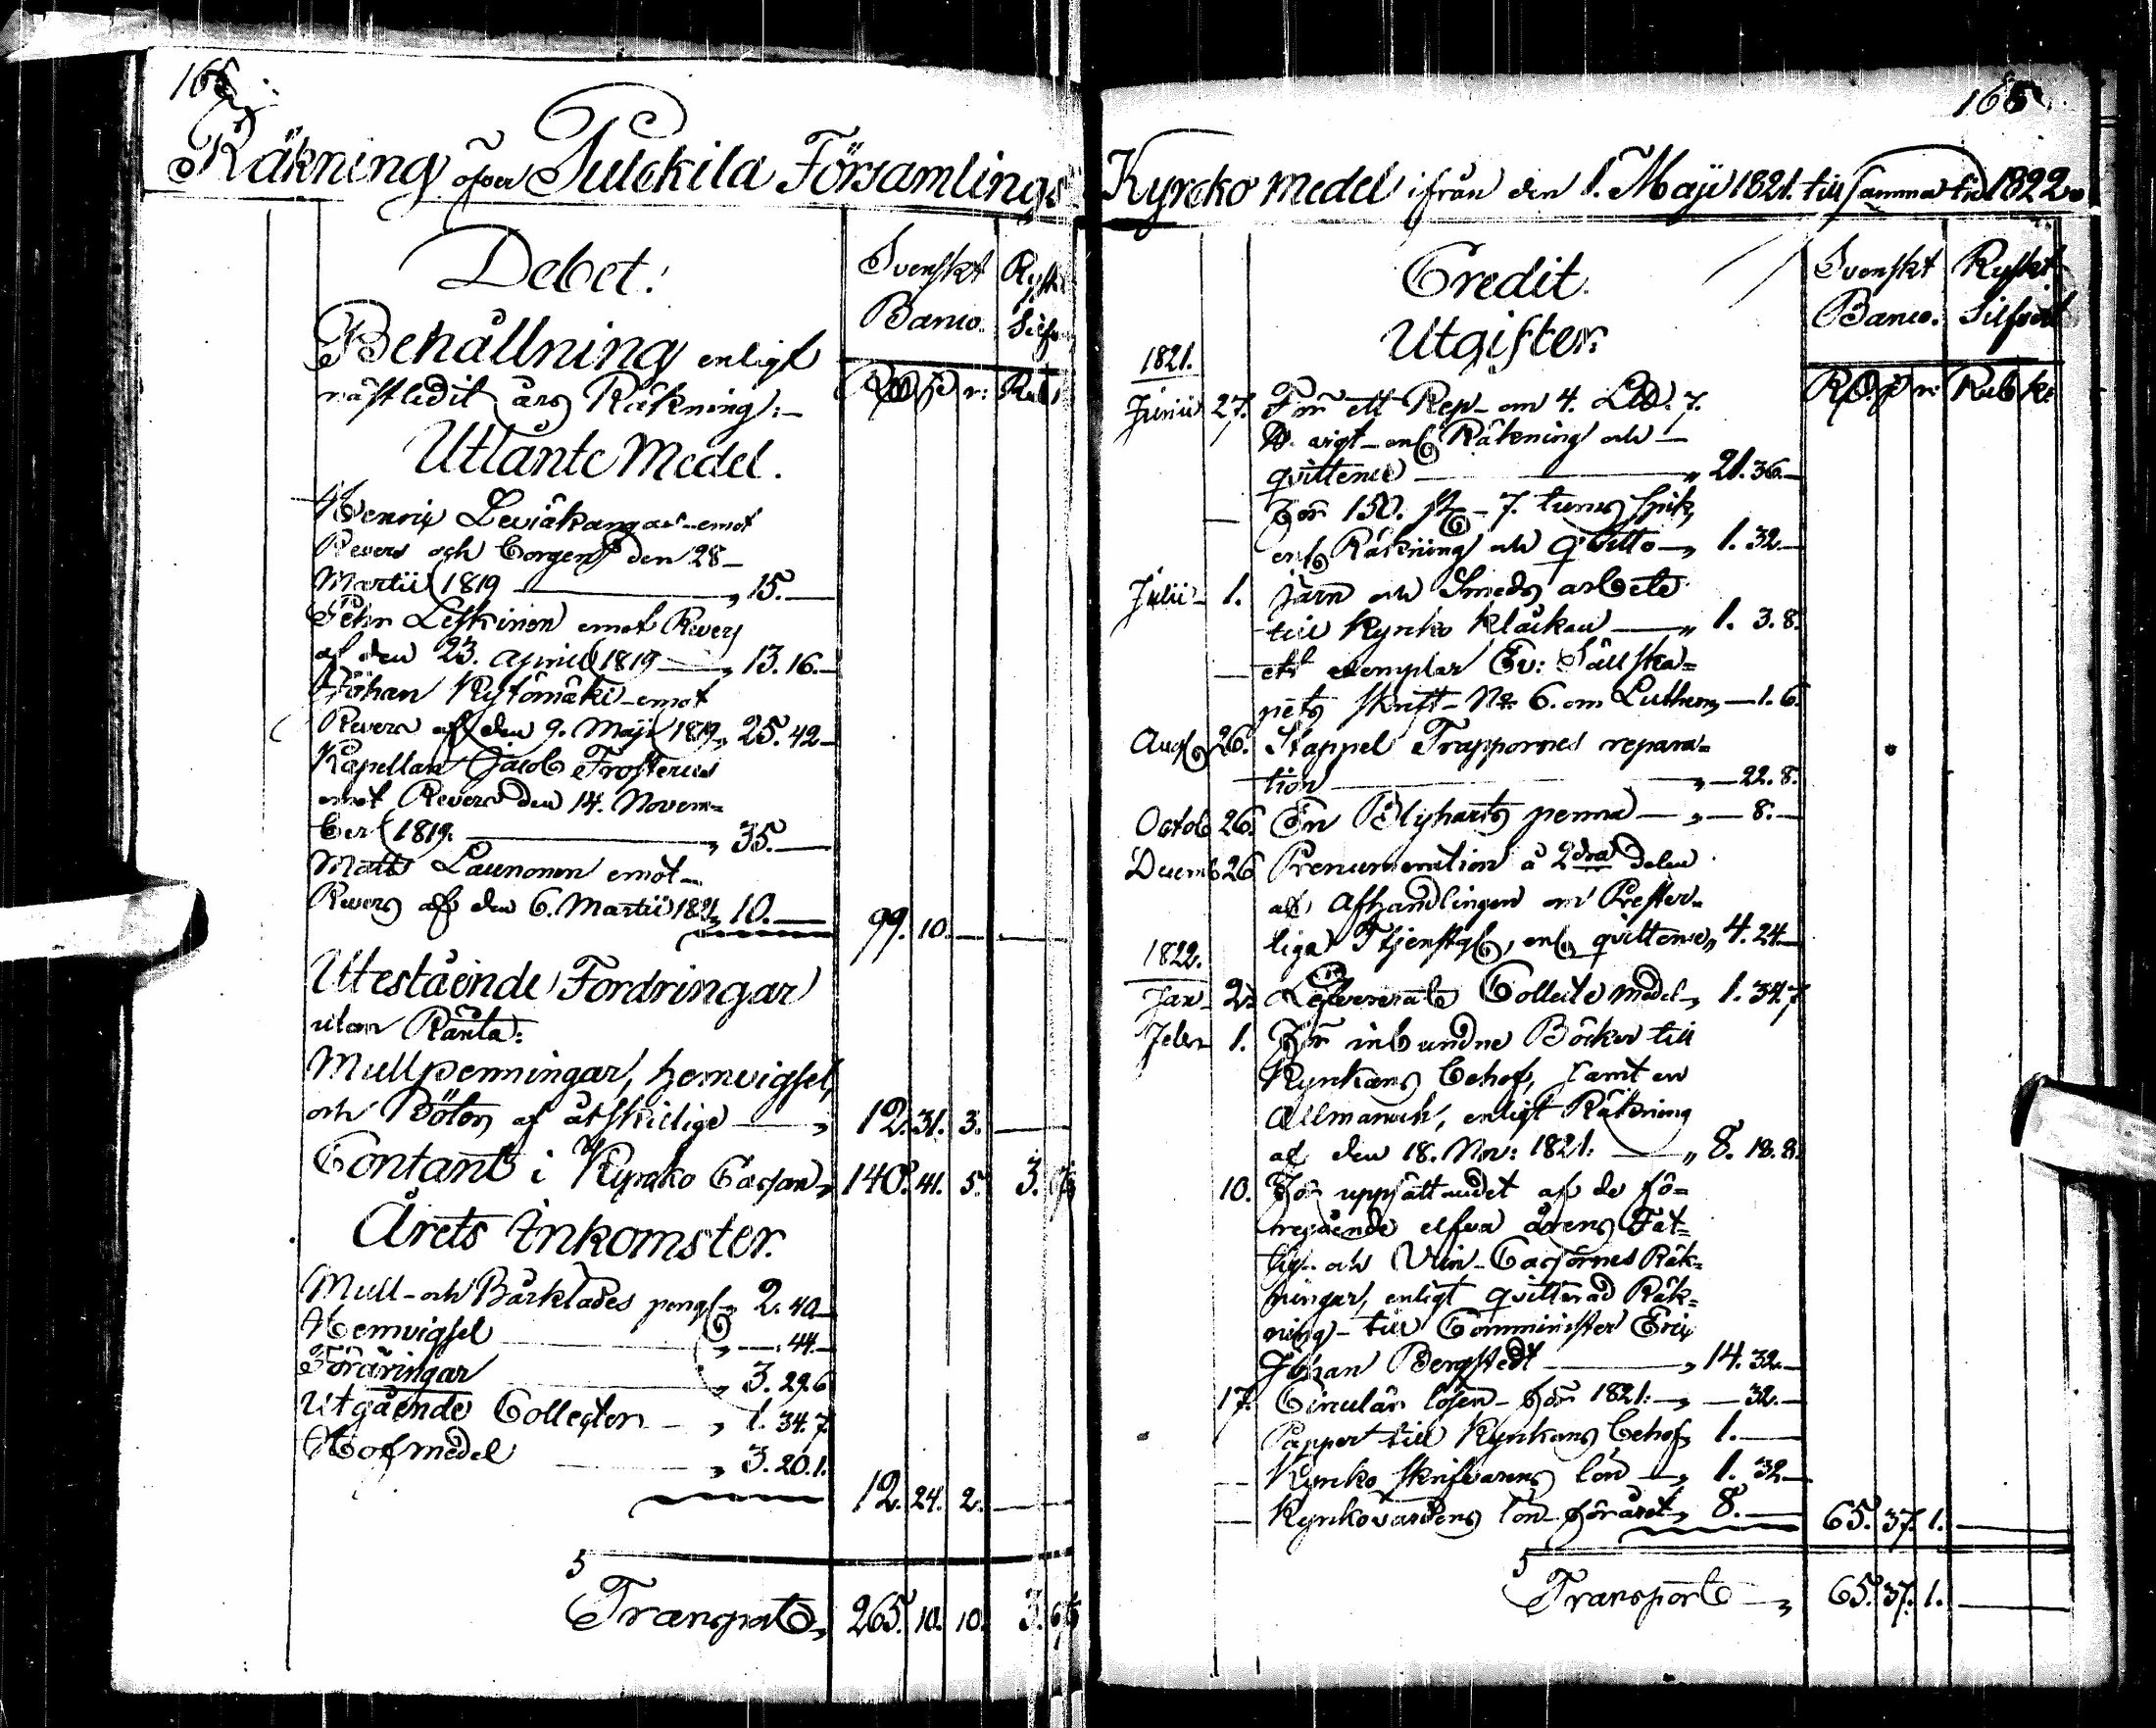 165
Räkning öfver Pulckila Församlings
Debet:
Svenskt Banco.
Behållning enligt
nästledit års Räkning:-
Utlånte Medel.
Henrix Leviäkangas emot
Revers och Borgen den 28
Martii 1819 „ 15.—
Pehr Leskinen emot Revers
af den 23. Aprill 1819 „ 13.16.—
Johan Kytömäki emot
Revers af den 9. Maji 1819 „ 25.42—
Kapellan Jacob Frosterus
emot Revers den 14. Novem=
ber 1819. „ 35.—
Matts Launonen emot
Revers af den 6. Martii 1821 „ 10.—
99. 10. —
Utestående Fordringar
utan Ränta:
Mullpenningar, hemvigsel,
och Böter af åtskillige „ 12. 31. 3.
Contant i Kyrcko Cassan „ 140. 41. 5. 3.
Årets Inkomster.
Mull- och Bårklädes peng „ 2. 40—
Hemvigsel „ —. 44.—
Föräringar „ 3. 29.6
Utgående Collecter „ 1. 34.7.
Hofmedel „ 3. 20.1.
12. 24. 2.
Transport „ 265. 10. 10. 3.
165
Kyrcko medel ifrån den 1. Maji 1821. till samma tid 1822.
Credit.
Svenskt Banco. Ryskt Silfver
Utgifter.
1821.
Junii 27. För ett Rep om 4. L℔. 7.
℔. vigt enl Räkning och
qvittence „ 21.36.—
För 150. st 7. tums spik,
enl Räkning och qvitto „ 1. 32—
Julii 1. järn och Smeds arbete
till Kyrcko Klåckan „ 1. 3. 8.
ett exemplar Ev: Sällska=
pets skrift No 6. om Luthern „ — 1. 6.
Aug 26. Stappel Trappornes repara=
tion „ — 22. 8.
Octob 26. En Blyharts penna „ — 8.—
Decemb 26 Prenumeration å 2dra delen
af Afhandlingen om Prester=
liga Tjenstg, enl qvittence „ 4. 24—
1822.
Jan 27. Levererade Collecte medel „ 1. 34.7
Febr 1. För inbundne Böcker till
Kyrkans behof, samt en
Allmanach, enligt Räkning
af den 18. Nov: 1821. „ 8. 18. 8.
10. För uppsättandet af de fö=
regående elfva årens Fat=
tig- och Vin-Cassornes Räk=
ningar, enligt qvitterad Räk=
ning till Comminister Erix
Johan Bergstedt „ 14. 32.—
17. Circulär lösen för 1821. „ — 32.—
Papper till Kyrkans behof, 1.—
Kyrko skrifvarens lön „ 1. 32—
Kyrkovärdens lön för året „ 8.— 65. 37. 1.
Transport „ 65. 37. 1.